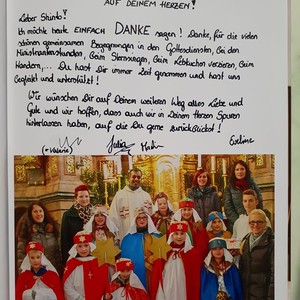 AUF DEINEM HERZEN!
Lieber Shinto!
Ich möchte heute EINFACH DANKE sagen! Danke, für die vielen
schönen gemeinsamen Begegnungen in den Gottesdiensten, bei den
Ministrantenstunden, beim Sternsingen, beim Lebkuchen verzieren, beim
Wandern,... Du hast Dir immer Zeit genommen und hast uns
begleitet und unterstützt!
Wir wünschen Dir auf Deinem weiteren Weg alles Liebe und
Gute und wir hoffen, dass auch wir in Deinem Herzen Spuren
hinterlassen haben, auf die Du gerne zurückblickst!
(=Valerie) Julia Eveline